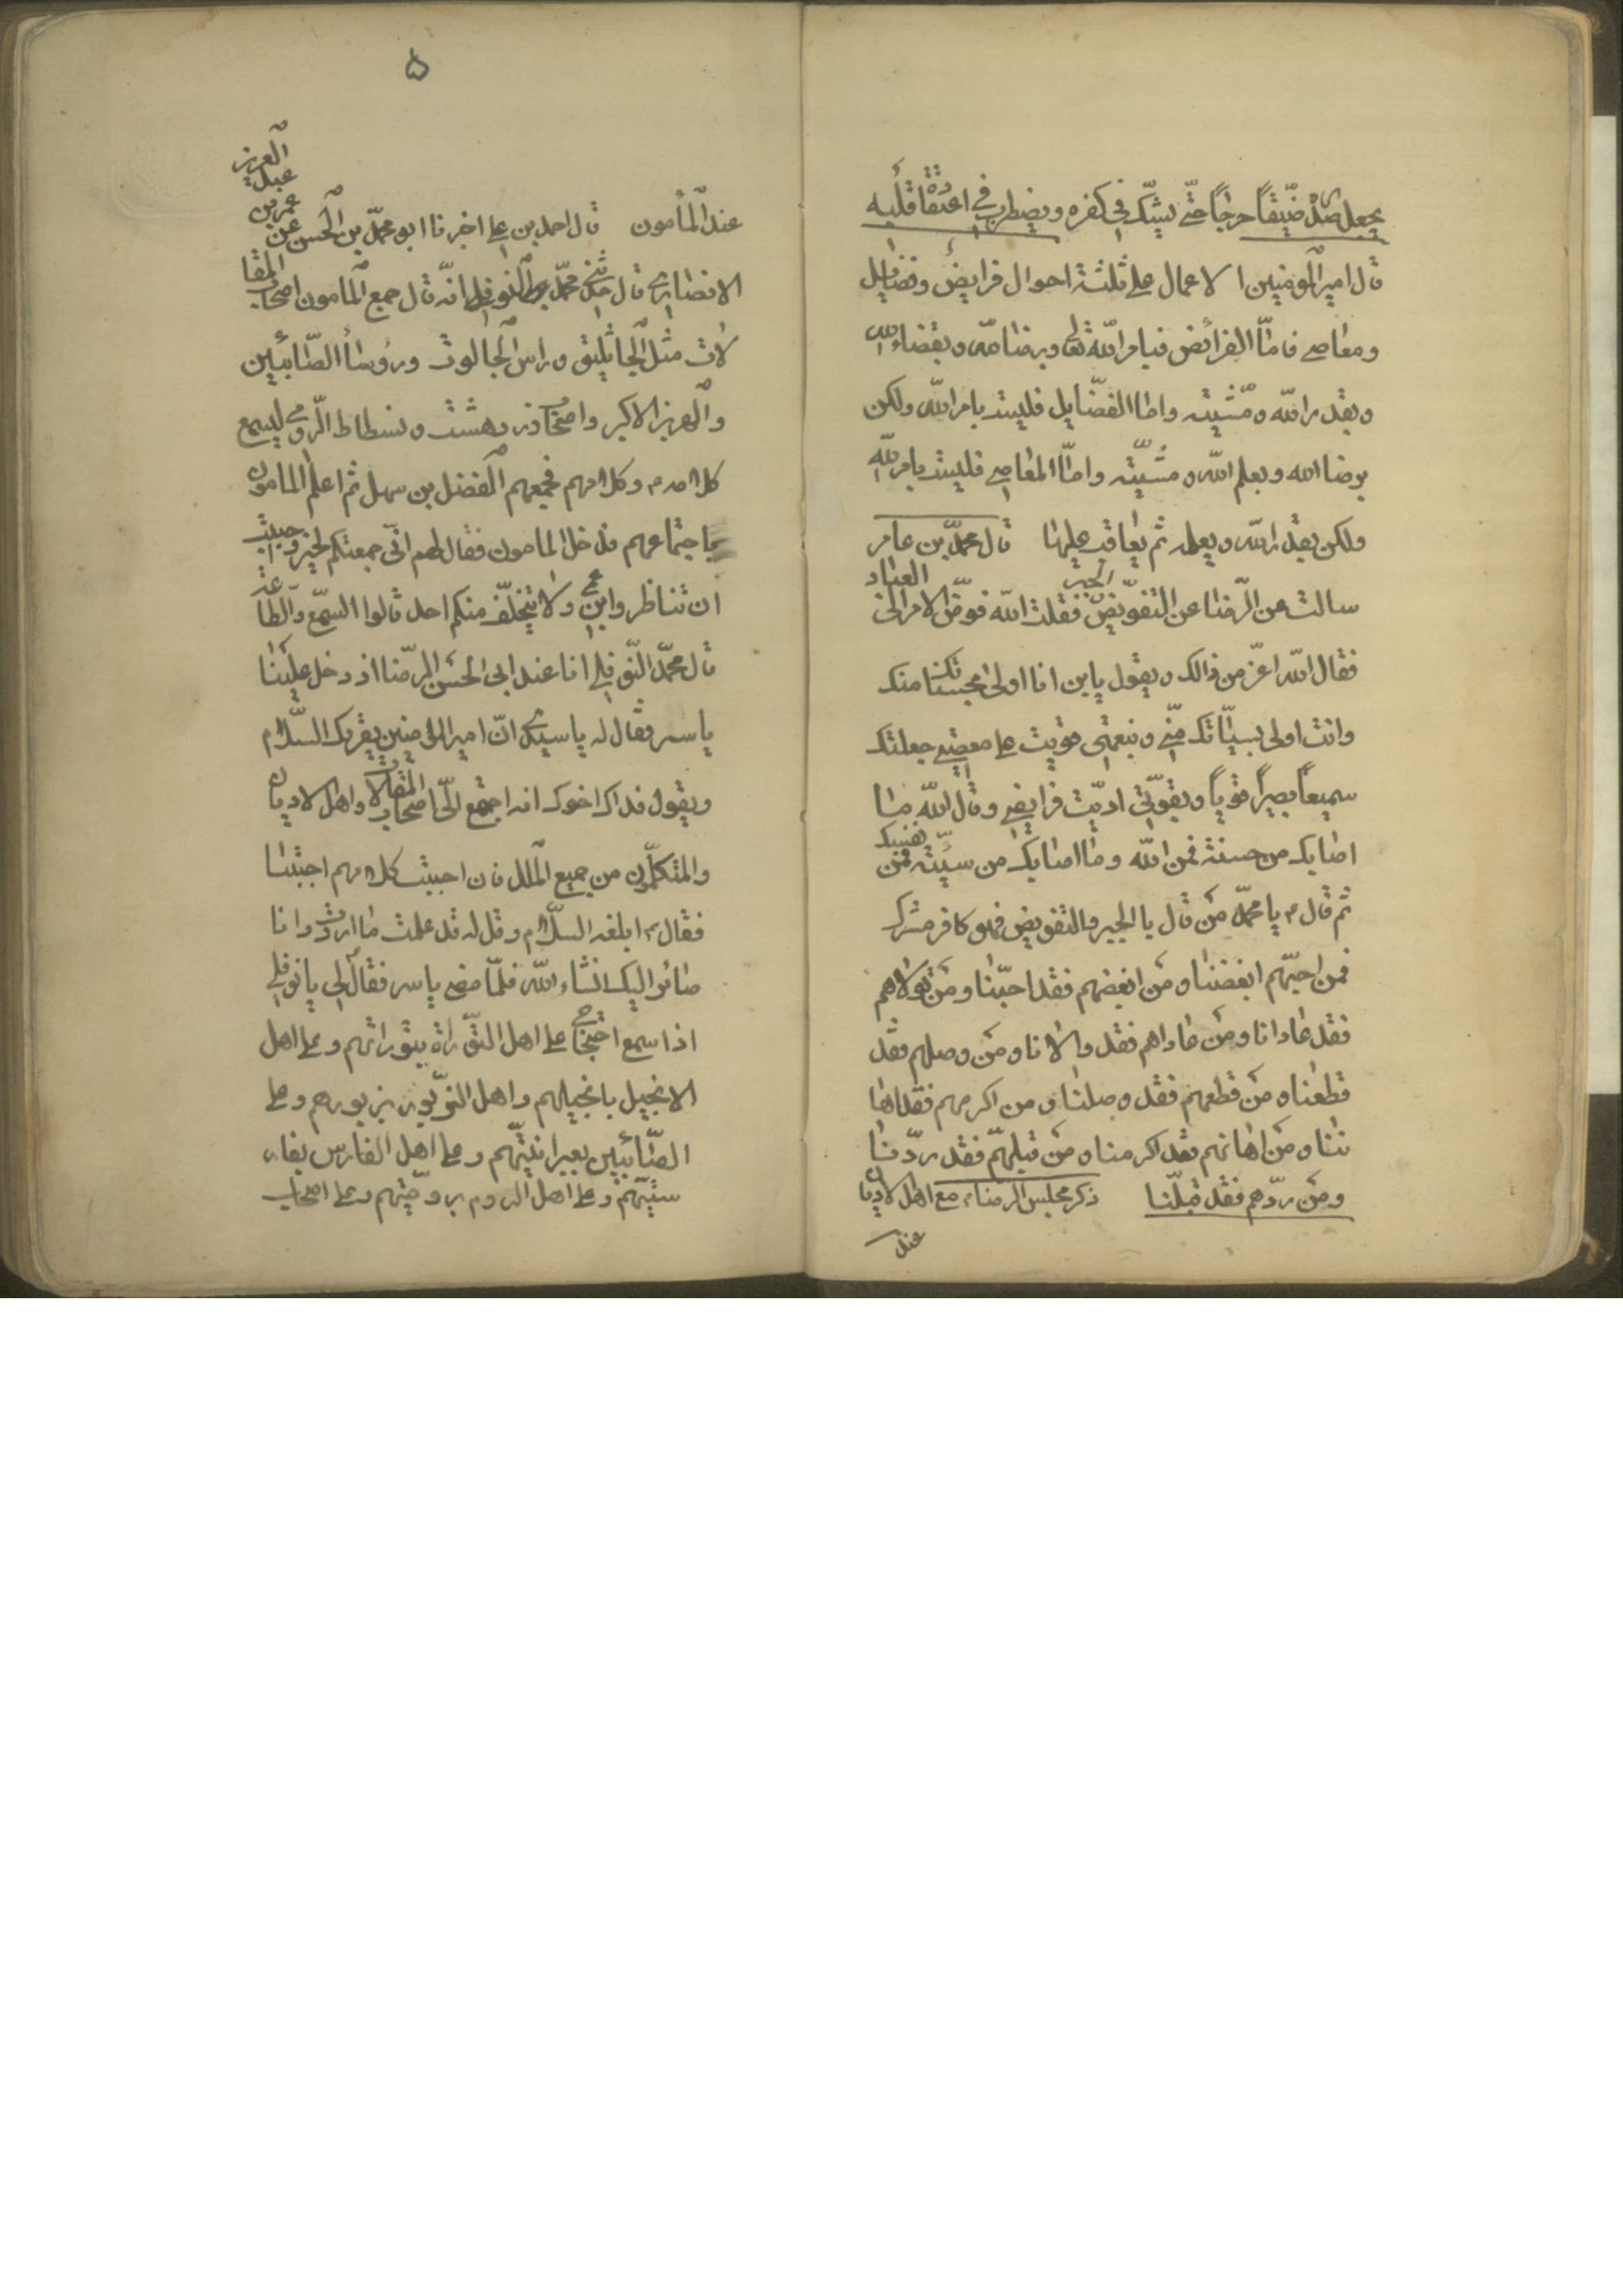 يجعل صدره ضيّقاً حرجاً حتّى يشكّ في كفره ويضطرب في اعتقاد قلبه
قال امير المومنين الاعمال على ثلثة احوال فرايض وفضايل
ومعاصي فامّا الفرائض فبامر الله تعالى وبرضا الله وبقضاء الله
وبقدر الله ومشيته واما الفضايل فليست بامر الله ولكن
برضا الله وبعلم الله ومشيّته وامّا المعاصي فليست بامر الله
ولكن بقدر الله وبعلمه ثم يعاقب عليها قال محمّد بن عامر
سالت عن الرّضا عن الجبر التفويض فقلت الله فوّض الامر الى العباد
فقال الله اعزّ من ذالك ويقول يابن انا اولى بحسناتك منك
وانت اولى بسيّاتك منّي وبنعمتي قويت على معصيتي جعلتك
سميعاً بصيراً قوياً وبقوّتي ادّيت فرايضي وقال الله ما
اصابك من حسنة فمن الله وما اصابك من سيّئة فمن نفسك
ثم قال يا محمّد من قال بالجبر والتفويض فهو كافر مشرك
فمن احبّهم ابغضنا ومن ابغضهم فقد احبّنا ومن تولاهم
فقد عادانا ومن عاداهم فقد والانا ومن وصلهم فقد
قطعنا ومن قطعهم فقد وصلنا ومن اكرمهم فقد اها
ننا ومن اهانهم فقد اكرمنا ومن قبلهم فقد ردّنا
ومن ردّهم فقد قبلنا ذكر مجلس الرضا مع اهل الاديان
عند
۵
عند المأمون قال احمد بن علي اخبرنا ابو محمّد بن الحسن عن عمر بن عبد العزيز
الانصاري قال حدثني محمّد النوفلي انّه قال جمع المامون اصحاب المقا
لات مثل الجاثليق وراس الجالوت ورؤسا الصّابئين
والهربز الاكبر واصحاب زردهشت ونسطاط الرّومي ليسمع
كلامه وكلامهم فجمعهم الفضل بن سهل ثم اعلم المامون
باجتماعهم فدخل المامون فقال لهم انّي جمعتكم لخير وحببت
ان تناظروا ابن عمي ولا يتخلّف منكم احد قالوا السمع والطاعة
قال محمّد النّوفلي انا عند ابي الحسن الرّضا اذ دخل علينا
ياسر فقال له يا سيدي انّ امير المومنين يقريك السّلام
ويقول فداك اخوك انه اجتمع الىّ اصحاب المقالات واهل الاديان
والمتكلّمون من جميع الملل فان احببت كلامهم اجبتنا
فقال ابلغه السلام وقل له قد علمت ما اردت وانا
صائر اليك انشاء الله فلمّا مضى ياسر فقال لي يا نوفلي
اذا سمع احتجاجي على اهل التّوراة بتوراتهم وعلى اهل
الانجيل بانجيلهم واهل الزّبور بزبورهم وعلى
الصّابئين بعبرانيّتهم وعلى اهل الفارس بفار
سيّتهم وعلى اهل الروم بروميّتهم وعلى اصحاب